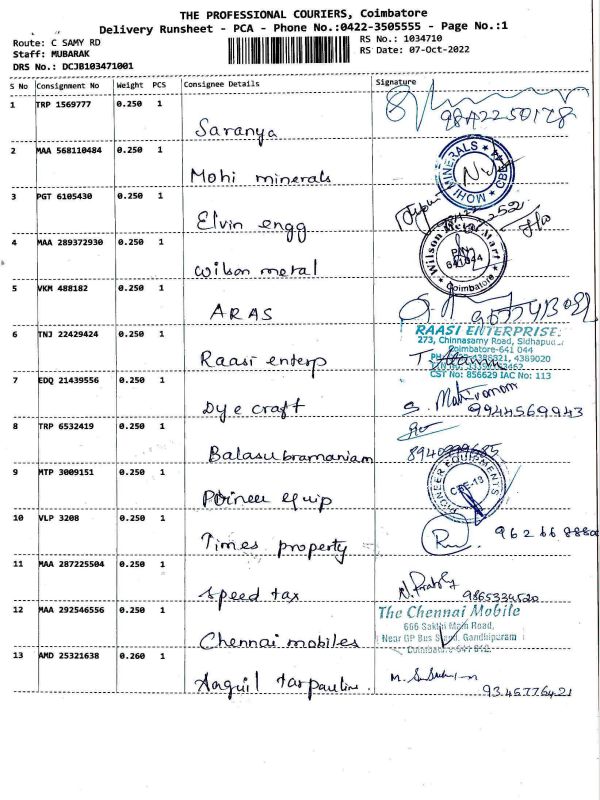 THE PROFESSIONAL COURIERS, Coimbatore
Delivery Runsheet - PCA - Phone No.:0422-3505555 - Page No.:1
Route: C SAMY RD
RS No.: 1034710
Staff: MUBARAK
RS Date: 07-Oct-2022
DRS No.: DCJB103471001
S No Consignment No Weight PCS Consignee Details Signature
1 TRP 1569777 0.250 1
Saranya 9842250178
2 MAA 568110484 0.250 1
Mohi minerals MOHI MINERALS CBE
3 PGT 6105430 0.250 1
Elvin engg
4 MAA 289372930 0.250 1
Wilson metal Wilson Metal Mart PIN 641044 Coimbatore
5 VKM 488182 0.250 1
ARAS
6 TNJ 22429424 0.250 1
RAASI ENTERPRISE
273, Chinnasamy Road, Sidhapudur
Coimbatore-641 044
Raasi enterp
CST No: 856629 IAC No: 113
7 EDQ 21439556 0.250 1
Dye craft 9944569943
8 TRP 6532419 0.250 1
Balasubramaniam
9 MTP 3009151 0.250 1
equip PIONEER EQUIPMENTS CBE-18
10 VLP 3208 0.250 1
Times property
11 MAA 287225504 0.250 1
Speed tax
12 MAA 292546556 0.250 1
The Chennai Mobile
666 Sakthi Main Road,
Near GP Bus Stand, Gandhipuram
Chennai mobiles
13 AMD 25321638 0.260 1
tarpauline. 9345776421